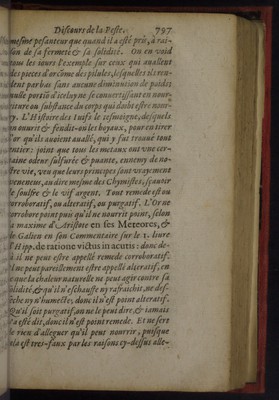 Discours de la Peste. 797
mesme pesanteur que quand il a esté pris, à rai-
son de sa fermeté & sa solidité. On en void
tous les iours l'exemple sur ceux qui auallent
des pieces d'or cõme des pilules, lesquelles ils ren-
dent par bas sans aucune diminution de poids
nulle portiõ d'icelui ne se conuertissant en nour-
riture ou substance du corps qui doibt estre nour-
ry. L'Histoire des Iuifs le tesmoigne, desquels
on ouurit & fendit-on les boyaux, pour en tirer
l'or qu'ils auoient auallé, qui y fut trouué tout
entier; joint que tous les metaux ont vne cer-
taine odeur sulfurée & puante, ennemy de no-
stre vie, veu que leurs principes sont vrayement
venemeux, au dire mesme des Chymistes, sçauoir
le soulfre & le vif argent. Tout remede est ou
corroboratif, ou alteratif, ou purgatif. L'Or ne
corrobore point puis qu'il ne nourrit point, selon
la maxime d'Aristote en ses Meteores, &
de Galien en son Commentaire sur le 1. liure
d'Hipp. de ratione victus in acutis: donc de-
là il ne peut estre appellé remede corroboratif.
Il ne peut pareillement estre appellé alteratif, en
ce que la chaleur naturelle ne peut agir contre sa
solidité, & qu'il n'eschauffe ny rafraichit, ne des-
seche ny n'humecte, donc il n'est point alteratif.
Qu'il soit purgatif, aucun ne le peut dire, & iamais
n'a esté dit, donc il n'est point remede. Et ne sert
de rien d'alleguer qu'il peut nourrir, puisque
cela est tres-faux par les raisons cy-dessus alle-